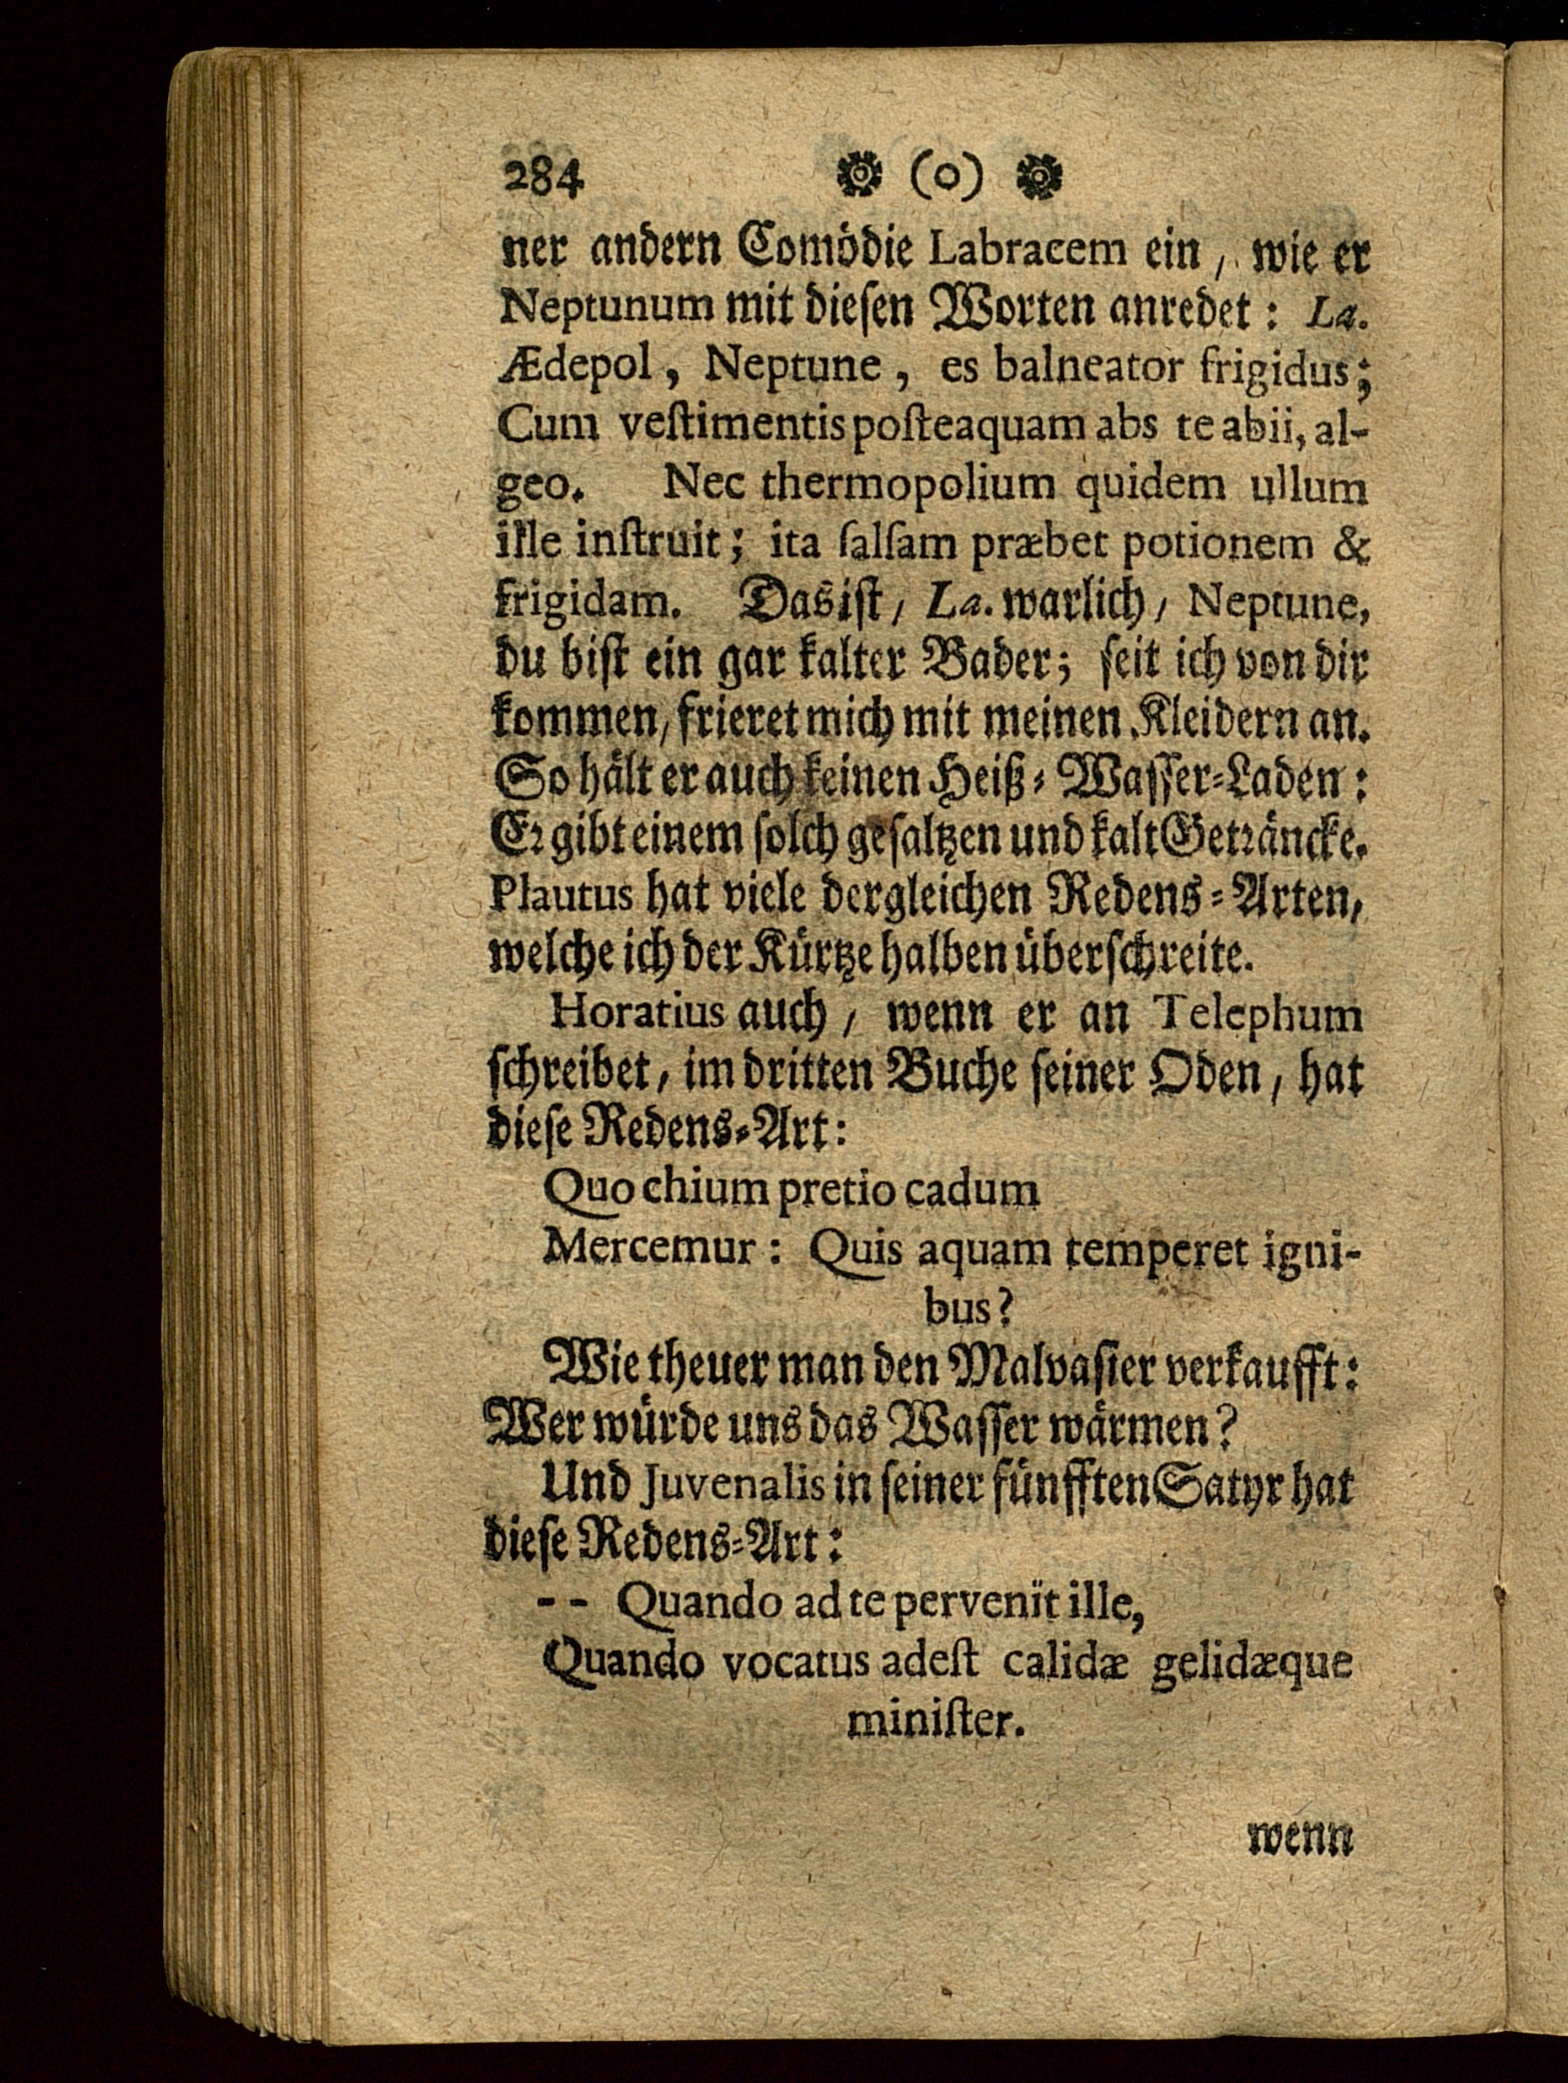 284 ❁ (o) ❁
ner andern Comödie Labracem ein, wie er
Neptunum mit dieſen Worten anredet: La.
Ædepol, Neptune, es balneator frigidus;
Cum veſtimentis poſteaquam abs te abii, al-
geo. Nec thermopolium quidem ullum
ille inſtruit; ita ſalſam præbet potionem &
frigidam. Das iſt/ La. warlich/ Neptune,
du biſt ein gar kalter Bader; ſeit ich von dir
kommen/ frieret mich mit meinen Kleidern an.
So hält er auch keinen Heiß-Waſſer-Laden:
Er gibt einem ſolch geſaltzen und kalt Geträncke.
Plautus hat viele dergleichen Redens-Arten/
welche ich der Kürtze halben überſchreite.
Horatius auch/ wenn er an Telephum
ſchreibet/ im dritten Buche ſeiner Oden/ hat
dieſe Redens-Art:
Quo chium pretio cadum
Mercemur: Quis aquam temperet igni-
bus?
Wie theuer man den Malvaſier verkaufft:
Wer würde uns das Waſſer wärmen?
Und Juvenalis in ſeiner fünfften Satyr hat
dieſe Redens-Art:
-- Quando ad te pervenit ille,
Quando vocatus adeſt calidæ gelidæque
miniſter.
wenn